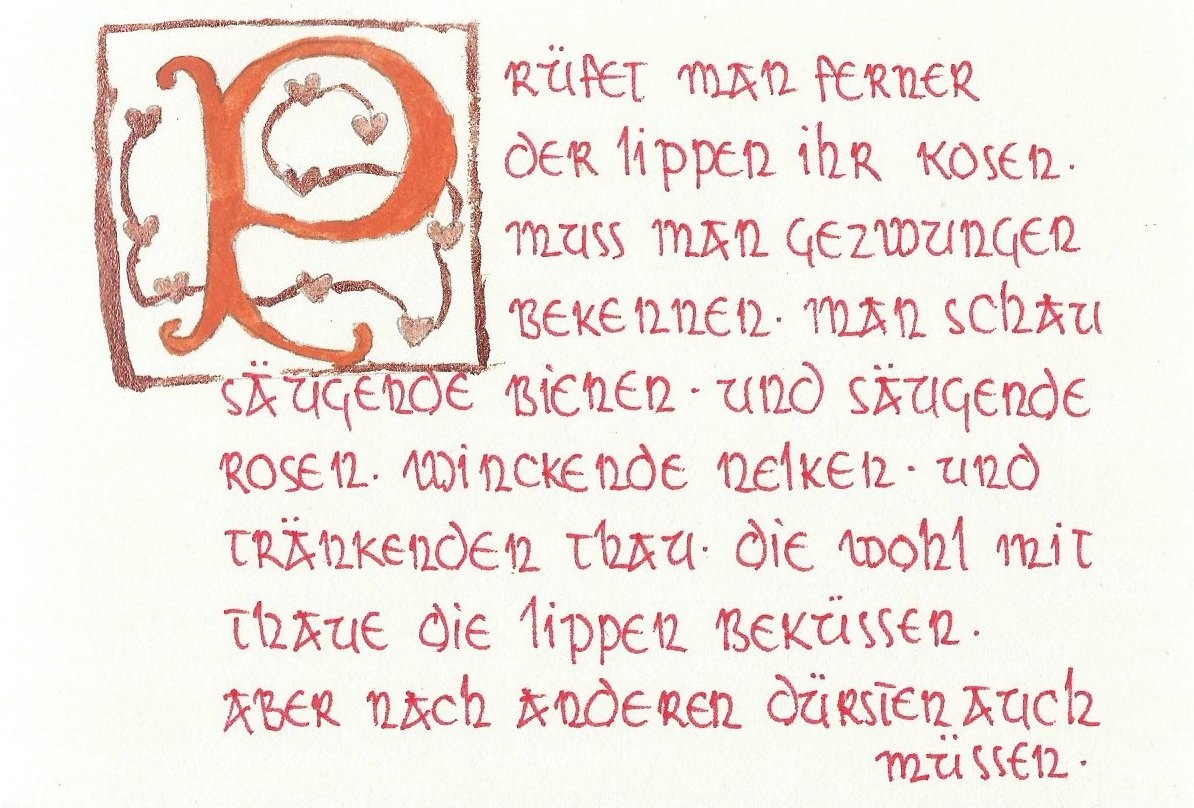 PRÜFET MAN FERNER
DER LIPPEN IHR KOSEN·
MUSS MAN GEZWUNGEN
BEKENNEN· MAN SCHAU
SÄUGENDE BIENEN· UND SÄUGENDE
ROSEN· WINCKENDE NELKEN· UND
TRÄNKENDEN THAU· DIE WOHL MIT
THAUE DIE LIPPEN BEKÜSSEN·
ABER NACH ANDEREN DÜRSTEN AUCH
MÜSSEN·